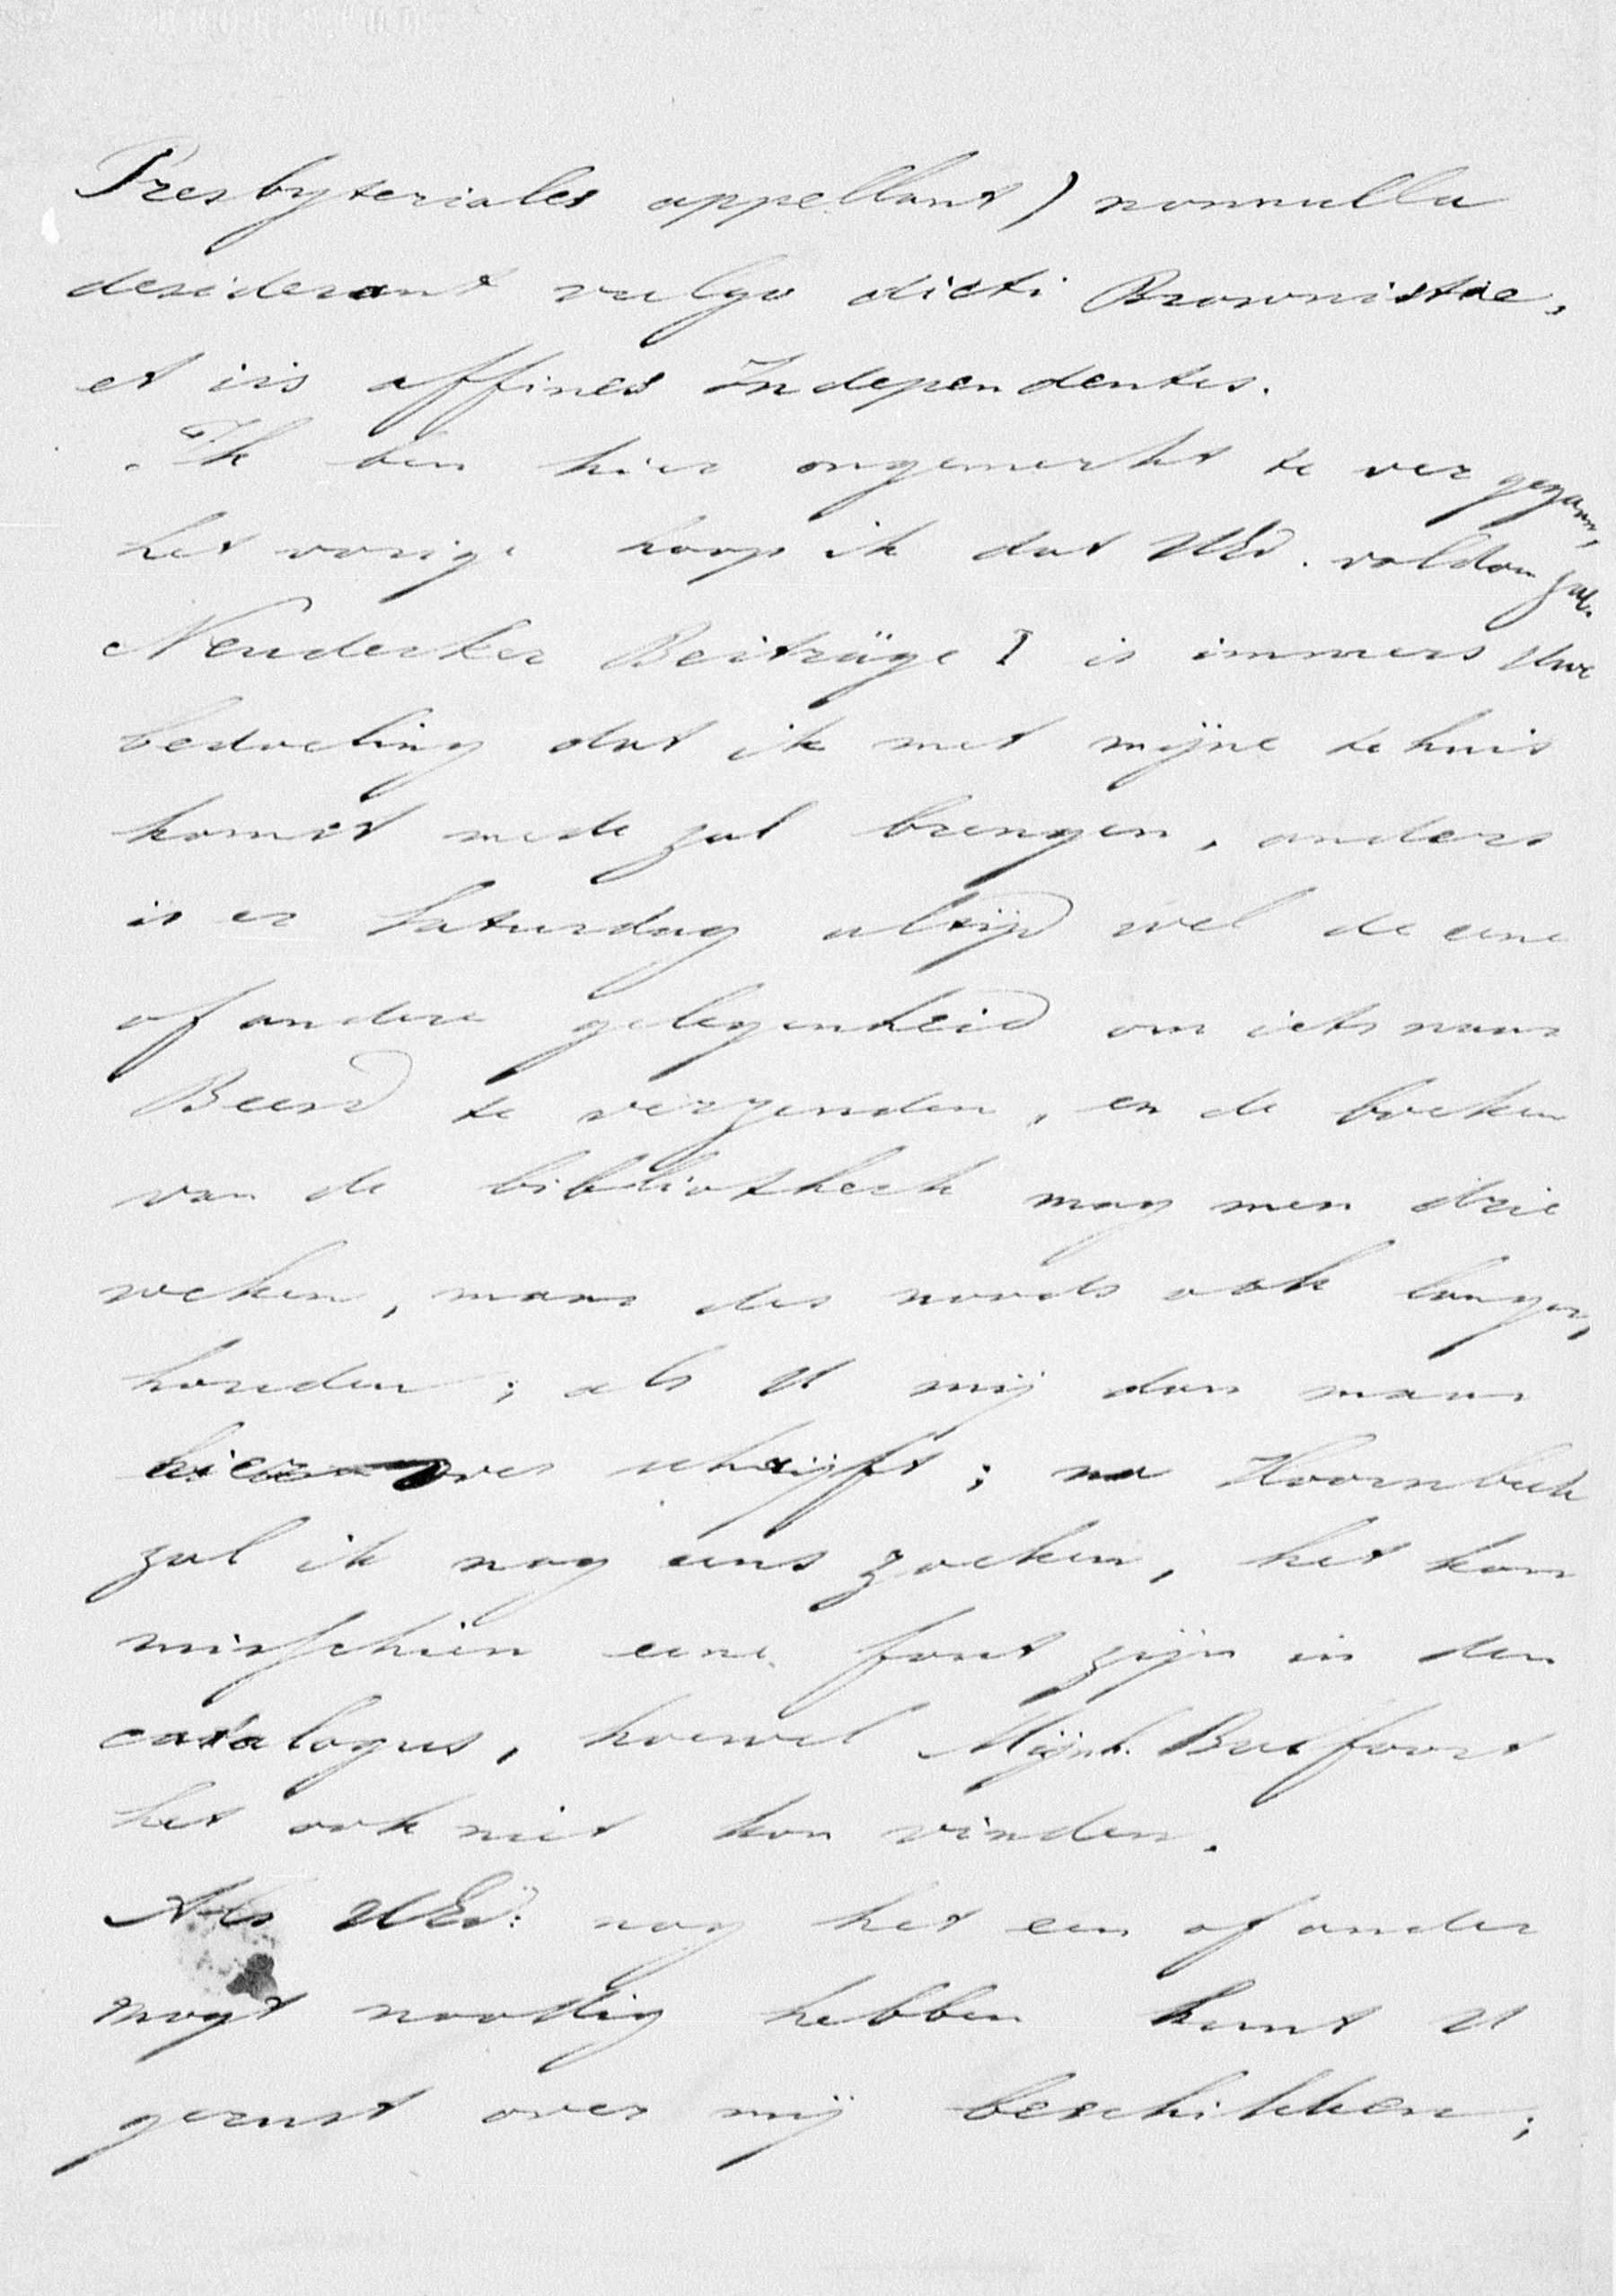 Presbyteriales appellant) nonnulla
desiderant vulgo dicti Brownistae,
et iis affines Independentes.
Ik ben hier ongemerkt te ver gegaan,
het vorige hoop ik dat UEd. voldoen zal.
Neudecker Beiträge I is immers Uwe
bedoeling dat ik met mijne tehuis
komst mede zal brengen, anders
is er Saturdag altijd wel de eene
of andere gelegenheid om iets naar
Beesd te verzenden, en de boeken
van de bibliotheek mag men drie
weken, maar des noods ook langer,
houden; als U mij dan maar
hierover schrijft; na Hoornbeek
zal ik nog eens zoeken, het kan
misschien eene fout zijn in den
catalogus, hoewel Mijnh.
het ook niet kon vinden.
Als UEd: nog het een of ander
mogt noodig hebben kunt U
gerust over mij beschikken;